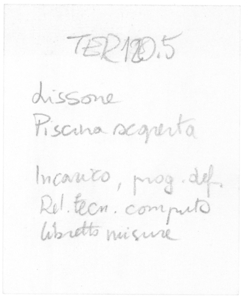 TER120.5
Lissone
Piscina scoperta
Incarico, prog. def.
Rel. tecn. computo
libretto misure